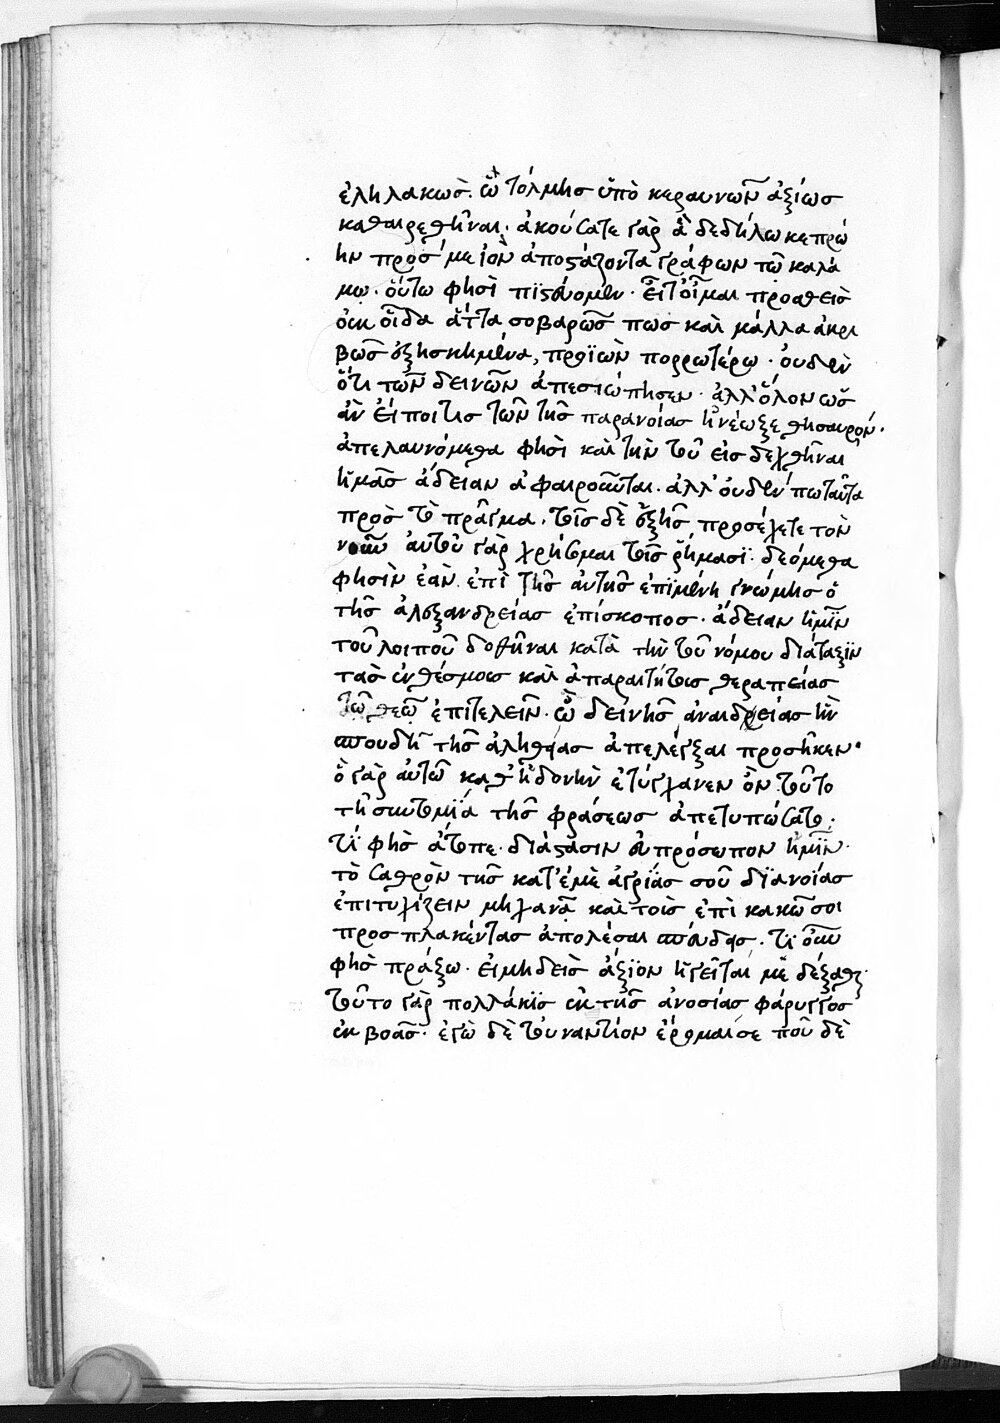 ἐληλακώς. ὢ τόλμης ὑπὸ κεραυνῶν ἀξίως
καθαιρεθῆναι. ἀκούσατε γὰρ ἃ δεδήλωκε πρώ
ην πρός με ἰὸν ἀποστάζοντα γράφων τῶ καλά
μω. οὕτω φησὶ πιστεύομεν. εἶτ οἶμαι προσθεὶς
οὐκ οἶδα ἄττα σοβαρῶς πως καὶ κάλλα ἀκρι
βῶς ἐξησκημένα, προϊὼν πορρωτέρω. οὐδὲν
ὅτι τῶν δεινῶν ἀπεσιώπησεν. ἀλλ' ὅλον ὡς
ἂν εἴποι τις τῶν τῆς παρανοίας ἠνέωξε θησαυρόν.
ἀπελαυνόμεθα φησὶ καὶ τὴν τοῦ εἰσδεχθῆναι
ἡμᾶς ἄδειαν ἀφαιροῦνται. ἀλλ' οὐδέν πω ταῦτα
πρὸς τὸ πρᾶγμα. τοῖς δὲ ἑξῆς προσέχετε τὸν
νοῦν αὐτοῦ γὰρ χρήσομαι τοῖς ῥήμασι. δεόμεθα
φησὶν ἐὰν ἐπὶ τῆς αὐτῆς ἐπιμένη γνώμης ὁ
τῆς ἀλεξανδρείας ἐπίσκοπος. ἄδειαν ἡμῖν
τοῦ λοιποῦ δοθῆναι κατὰ τὴν τοῦ νόμου διάταξιν
τὰς ἐνθέσμους καὶ ἀπαραιτήτους θεραπείας
τῶ θεῶ ἐπιτελεῖν. ὢ δεινῆς ἀναιδρείας ἣν
σπουδῆ τῆς ἀληθείας ἀπελέγξαι προσῆκεν.
ὃ γὰρ αὐτῶ καθ' ἡδονὴν ἐτύγχανεν ὂν τοῦτο
τῆ συντομία τῆς φράσεως ἀπετυπώσατο.
τί φὴς ἄτοπε. διάστασιν εὐπρόσωπον ἡμῖν
τὸ σαθρὸν τῆς κατ' ἐμὲ ἀγρίας σοῦ διανοίας
ἐπιτυχίζειν μηχανᾶ καὶ τοὺς ἐπὶ κακῶ σοι
προσπλακέντας ἀπολέσαι σπεύδεις. τί οὖν
φὴς πράξω. εἰ μηδεὶς ἄξιον ἡγεῖται με δέξασθαι
τοῦτο γὰρ πολλάκις ἐκ τῆς ἀνοσίας φάρυγγος
ἐκβοᾶς. ἐγὼ δὲ τοὐναντίον ἐρήσομαί σε ποῦ δὲ